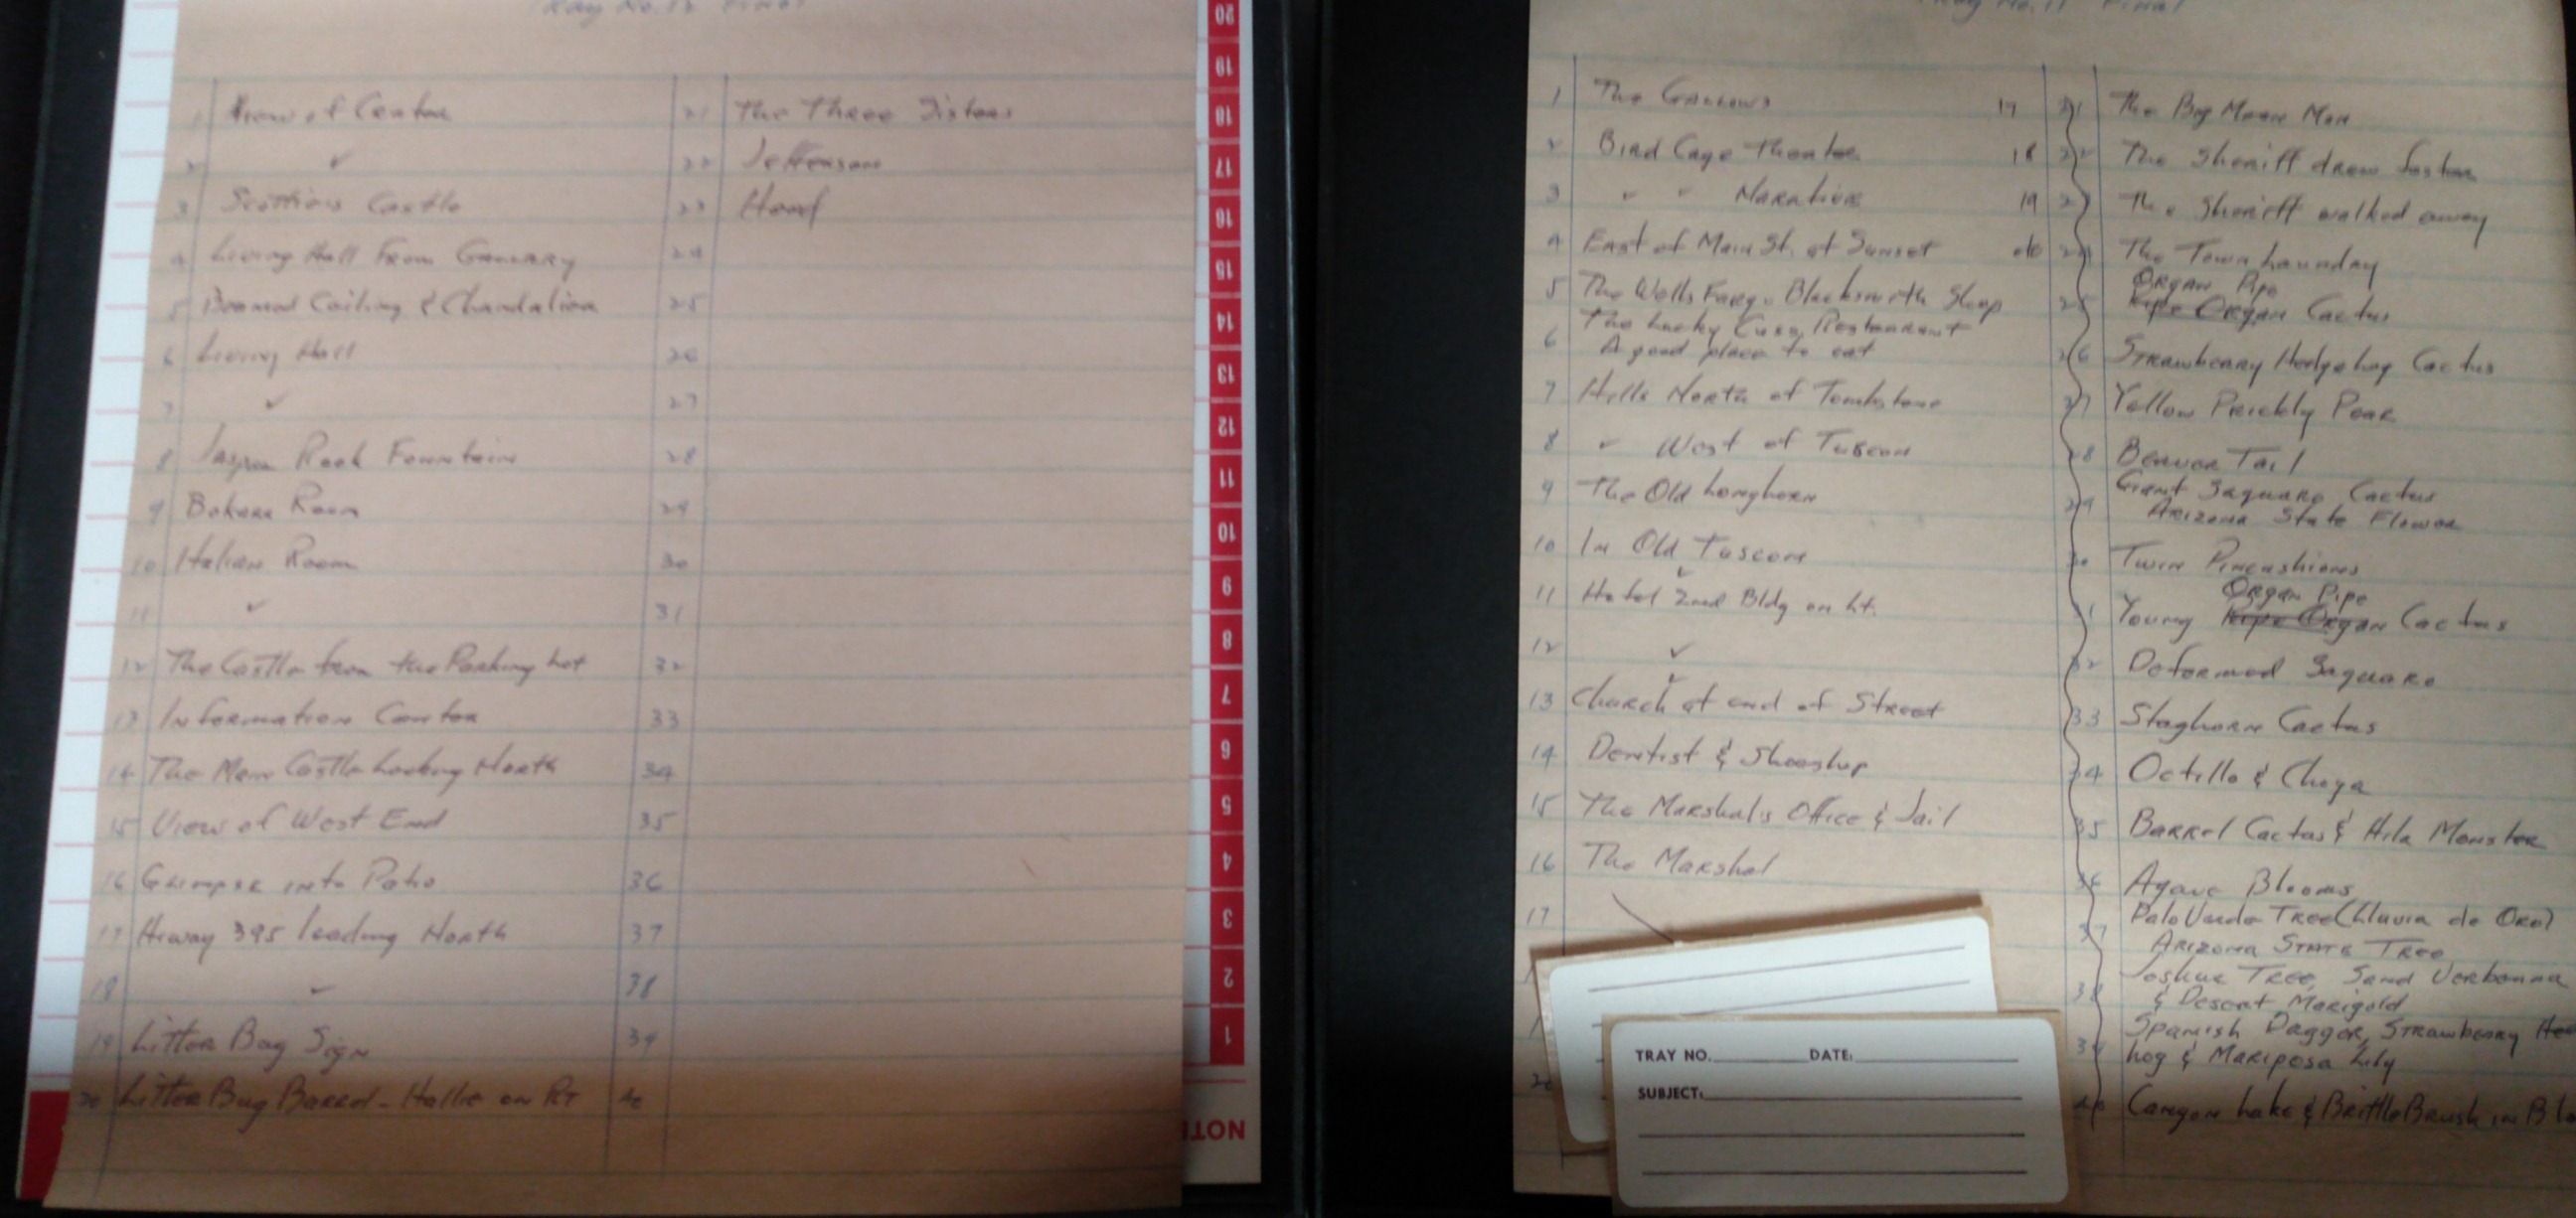 Tray No. 12 Final
1 View of Center
2 ✓
3 Scotties Castle
4 Living Hall From Gallary
5 Beamed Ceiling & Chandalier
6 Living Hall
7 ✓
8 Jasper Rook Fountain
9 Bokara Room
10 Italian Room
11 ✓
12 The Castle from the Parking Lot
13 Information Center
14 The Main Castle Looking North
15 View of West End
16 Glimpse into Patio
17 Hiway 395 leading North
18 ✓
19 Litter Bag Sign
20 Litter Bug Barrel - Hallie on Rt
21 The Three Sisters
22 Jefferson
23 Hood
24
25
26
27
28
29
30
31
32
33
34
35
36
37
38
39
40
20
19
18
17
16
15
14
13
12
11
10
9
8
7
6
5
4
3
2
1
NOT
Tray No. 11 Final
1 The Gallows 17
2 Bird Cage Theater 18
3 ✓ ✓ Narative 19
4 East of Main St. at Sunset
5 The Wells Fargo Blacksmith Shop
6 The Lucky Cuss Restaurant
A good place to eat
7 Hills North of Tombstone
8 ✓ West of Tuscon
9 The Old Longhorn
10 In Old Tuscon
11 Hotel 2nd Bldg on Lt.
12 ✓
13 Church at end of Street
14 Dentist & Shoeshop
15 The Marshals Office & Jail
16 The Marshal
17
20
21 The Big Mean Man
22 The Sheriff drew faster
23 The Sheriff walked away
24 The Town Launday
Organ Pipe
25 Pipe Organ Cactus
26 Strawberry Hedgehog Cactus
27 Yellow Prickly Pear
28 Beaver Tail
Giant Saguaro Cactus
29 Arizona State Flower
30 Twin Pincushions
Organ Pipe
31 Young Pipe Organ Cactus
32 Deformed Saguaro
33 Staghorn Cactus
34 Octillo & Choya
35 Barrel Cactus & Hila Monster
36 Agave Blooms
Palo Verde Tree (Lluvia de Oro)
37 Arizona State Tree
Joshua Tree, Sand Verbanna
38 & Desert Marigold
Spanish Dagger, Strawberry Hed
39 hog & Mariposa Lily
40 Canyon Lake & Brittle Brush in Blo
TRAY NO. DATE:
SUBJECT: